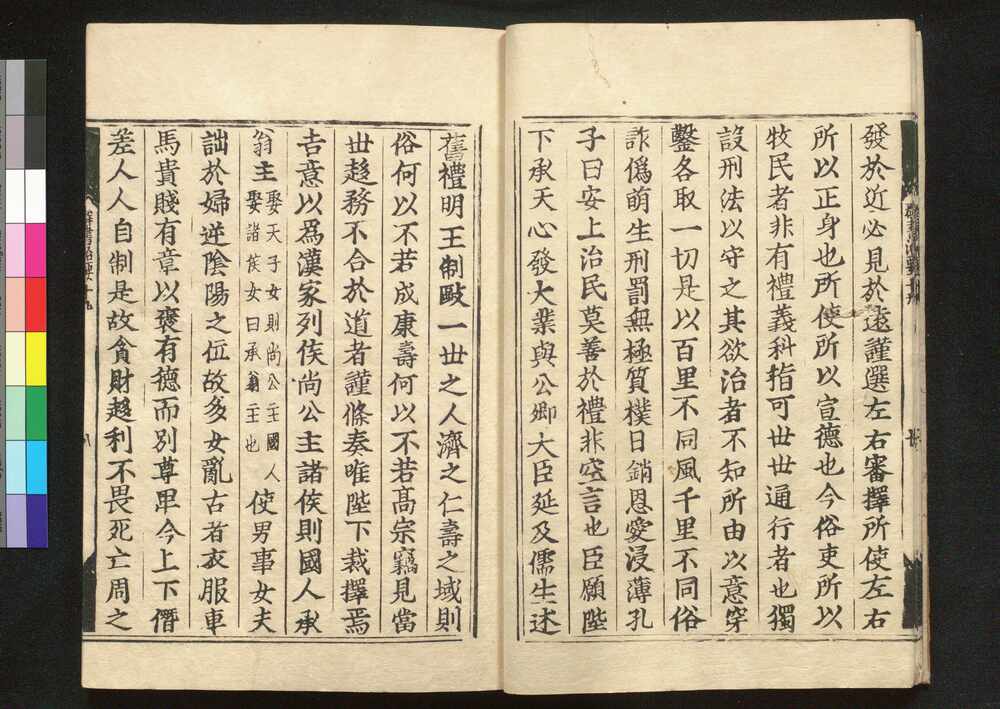 發於近必見於遠謹選左右審擇所使左右
所以正身也所使所以宣德也今俗吏所以
牧民者非有禮義科指可世世通行者也獨
設刑法以守之其欲治者不知所由以意穿
鑿各取一切是以百里不同風千里不同俗
詐僞萌生刑罰無極質樸日銷恩愛浸薄孔
子曰安上治民莫善於禮非空言也臣願陛
下承天心發大業與公卿大臣延及儒生述
舊禮明王制敺一世之人濟之仁壽之域則
俗何以不若成康壽何以不若髙宗竊見當
世趍務不合於道者謹條奏唯陛下裁擇焉
吉意以爲漢家列侯尚公主諸侯則國人承
翁主娶天子女則尚公主國人娶諸侯女曰承翁主也使男事女夫
詘於婦逆陰陽之位故多女亂古者衣服車
馬貴賤有章以襃有德而別尊卑今上下僭
差人人自制是故貪財趍利不畏死亡周之
群書治要十九
八